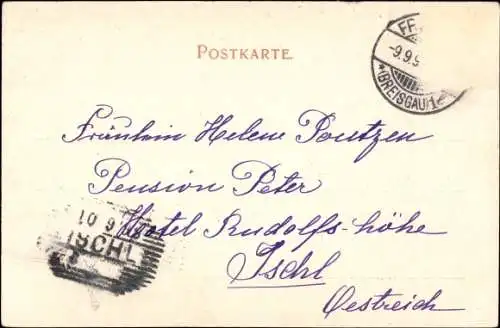 POSTKARTE.
FR
-9.9.9
*(BREISGAU)1
Fräulein Helene
Pension Peter
Hotel Rudolfs-höhe
10 9
ISCHL
Ischl
Oestreich